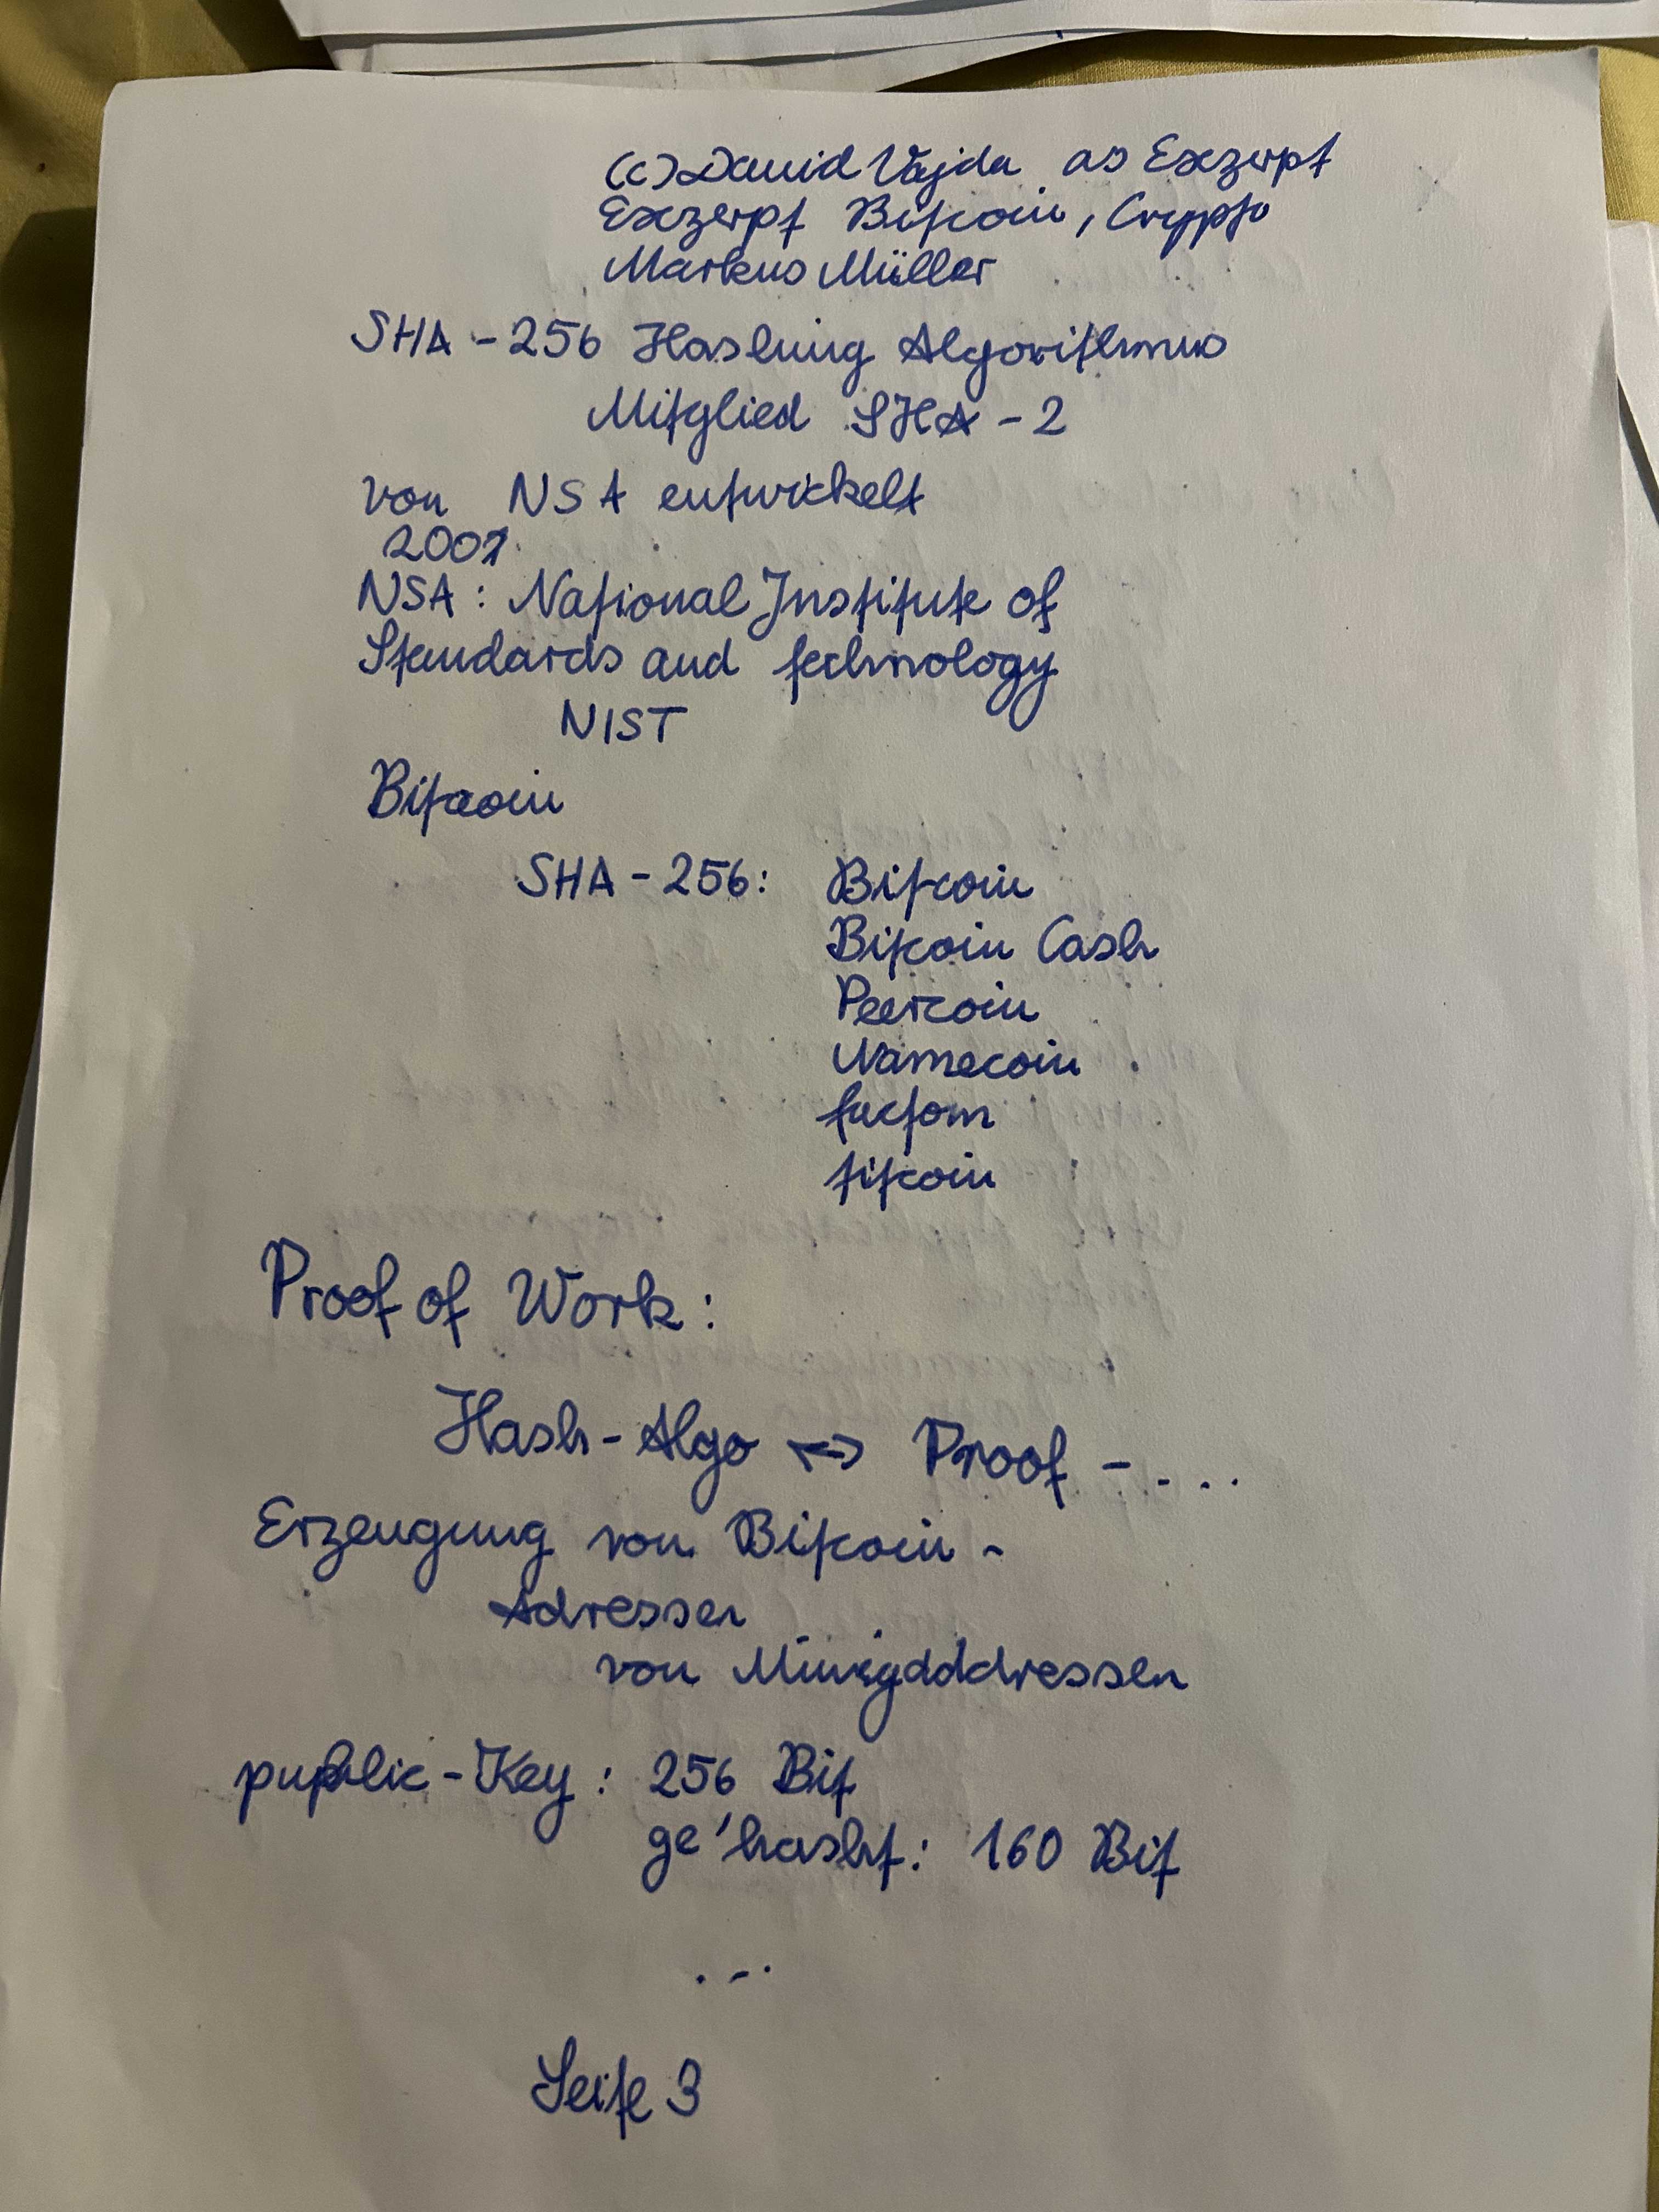 (c) David Vajda as Exzerpt
Exzerpt Bitcoin, Crypto
Markus Müller
SHA-256 Hashing Algorithmus
Mitglied SHA-2
von NSA entwickelt
2001
NSA: National Institute of
Standards and technology
NIST
Bitcoin
SHA-256: Bitcoin
Bitcoin Cash
Peercoin
Namecoin
factom
titcoin
Proof of Work:
Hash-Algo <-> Proof - ...
Erzeugung von Bitcoin-
Adressen
von
public-Key: 256 Bit
ge'hasht: 160 Bit
...
Seite 3